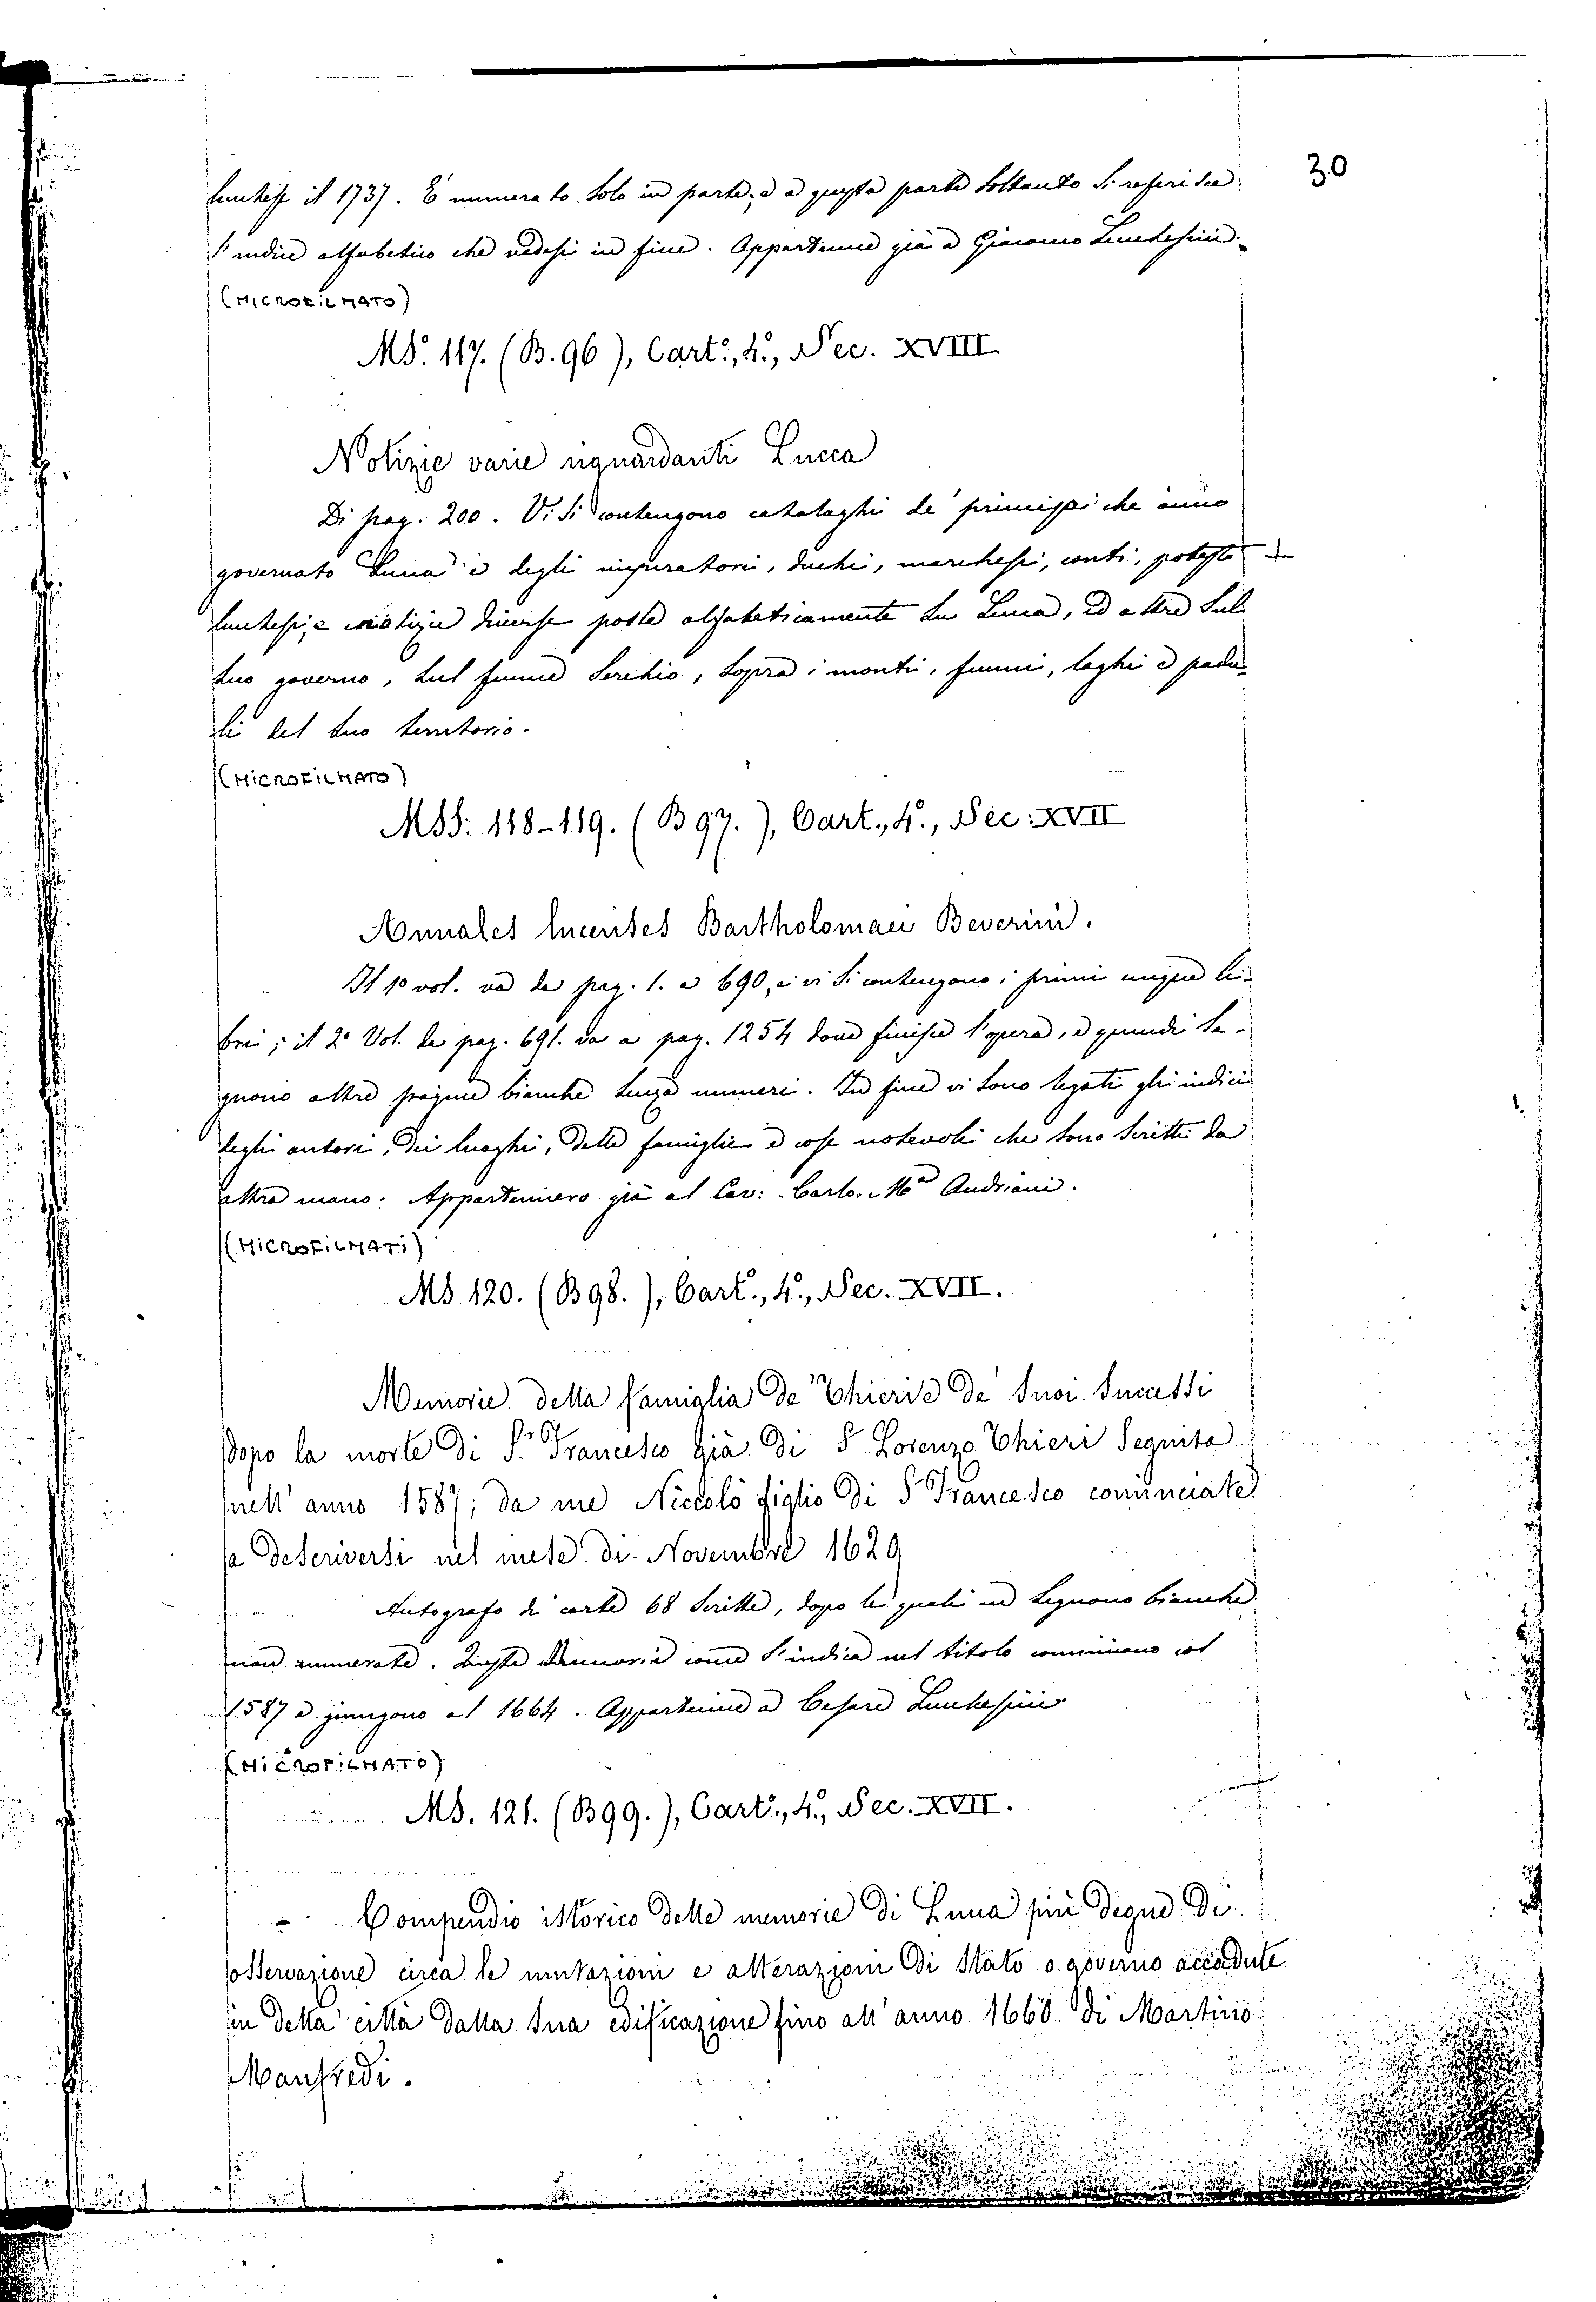 30
lucchese il 1737. È numerato solo in parte, e a questa parte soltanto si referisce
l'indice alfabetico che vedesi in fine. Appartenne già a Giacomo Lucchesini.
(MICROFILMATO)
MS. 117. (B. 96), Cart., 4°, Sec. XVIII
Notizie varie riguardanti Lucca
Di pag. 200. Vi si contengono cataloghi de' principi che ànno
governato Lucca e degli imperatori, duchi, marchesi, conti, potestà
lucchesi, e notizie diverse poste alfabeticamente su Lucca, ed altre sul
suo governo, sul fiume Serchio, sopra i monti, fiumi, laghi e padu-
li del suo territorio.
(MICROFILMATO)
MSS. 118-119. (B 97.), Cart., 4°, Sec. XVII
Annales lucenses Bartholomaei Beverini.
Il 1° vol. va da pag. 1. a 690, e vi si contengono i primi cinque li-
bri; il 2° Vol. da pag. 691. va a pag. 1254 dove finisce l'opera, e quindi se-
guono altre pagine bianche senza numeri. In fine vi sono legati gli indici
degli autori, dei luoghi, delle famiglie e cose notevoli che sono scritti da
altra mano. Appartennero già al Cav: Carlo Ma Andreoni.
(MICROFILMATI)
MS 120. (B 98.), Cart., 4°, Sec. XVII.
Memorie della famiglia de' Chieri e de' suoi successi
dopo la morte di Sr Francesco già di S Lorenzo Chieri seguita
nell' anno 1587; da me Niccolò figlio di S Francesco cominciate
a descriversi nel mese di Novembre 1629
Autografo di carte 68 scritte, dopo le quali ne seguono bianche
non numerate. Queste Memorie come s'indica nel titolo cominciano col
1587 e giungono al 1664. Appartenne a Cesare Lucchesini
(MICROFILMATO)
MS. 121. (B 99.), Cart., 4°, Sec. XVII.
Compendio istorico delle memorie di Lucca più degne di
osservazione circa le mutazioni e alterazioni di stato o governo accadute
in detta città dalla sua edificazione fino all' anno 1660. di Martino
Manfredi.